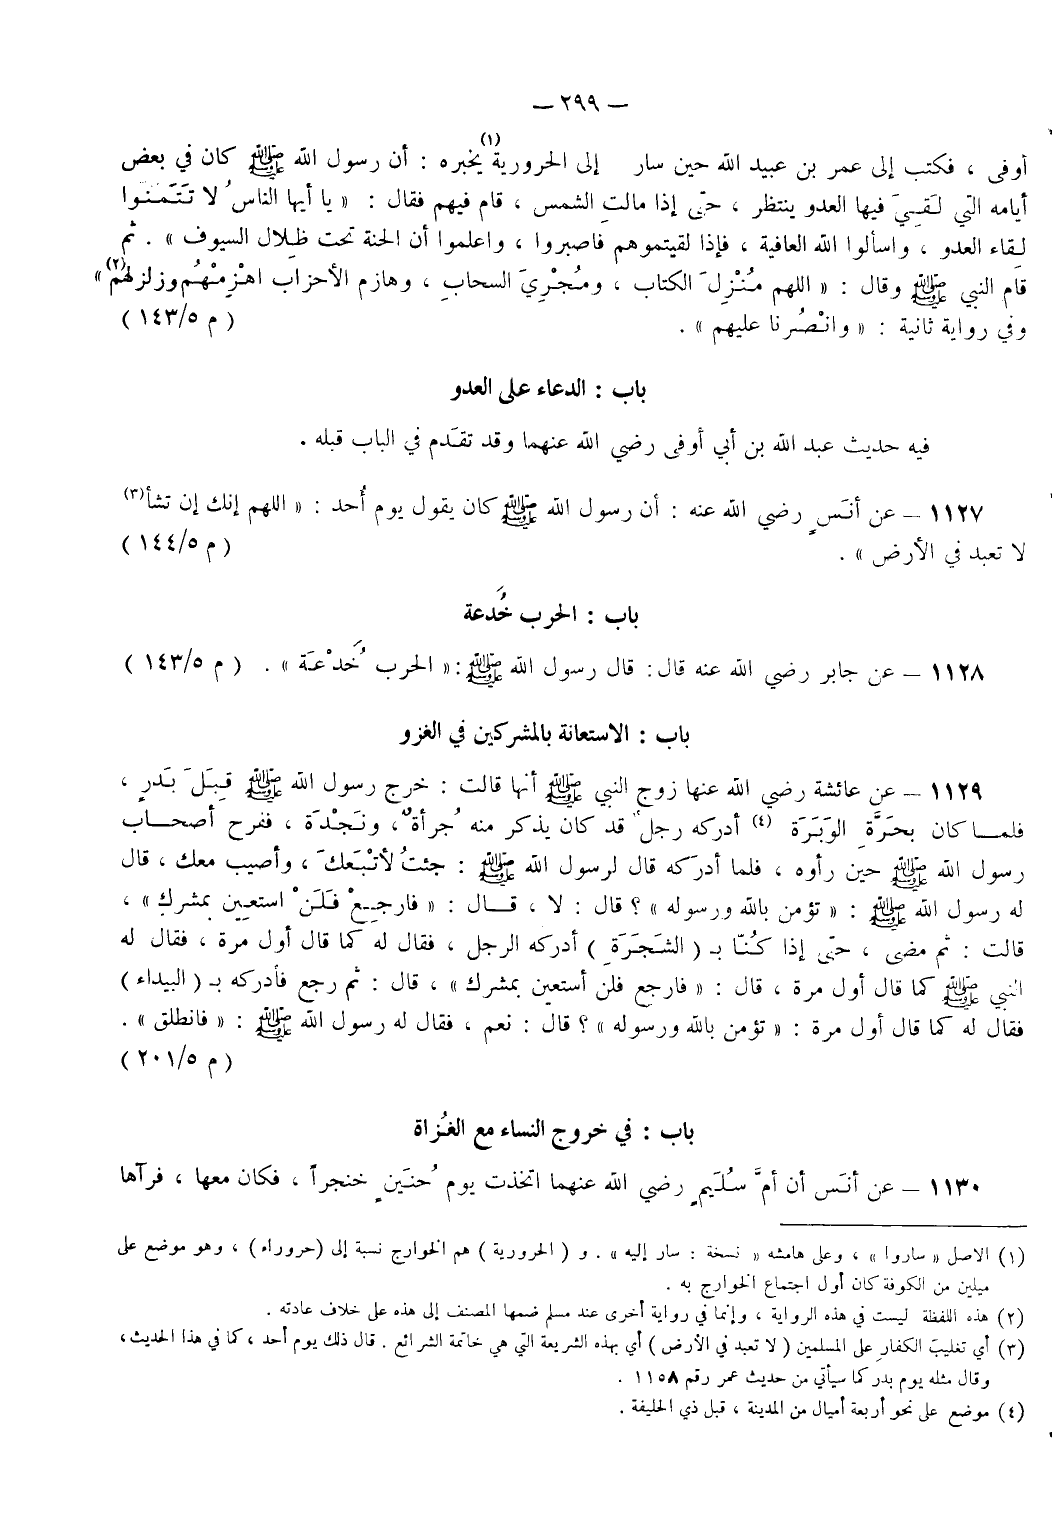 — ٢٩٩ —
أوفى ، فكتب إلى عمر بن عبيد الله حين سار إلى الحرورية (١) يخبره : أن رسول الله ﷺ كان في بعض
أيامه التي لَقِيَ فيها العدو ينتظر ، حتى إذا مالت الشمس ، قام فيهم فقال : « يا أيها الناسُ لا تَتَمَنَّوا
لِقاء العدو ، واسألوا الله العافية ، فإذا لقيتموهم فاصبروا ، واعلموا أن الجنة تحت ظِلال السيوف » . ثم
قام النبي ﷺ وقال : « اللهم مُنْزِلَ الكتاب ، ومُجْرِيَ السحاب ، وهازم الأحزاب اهْزِمْهُم وزلزلهم (٢) »
وفي رواية ثانية : « وانْصُرنا عليهم » . ( م ١٤٣/٥ )
باب : الدعاء على العدو
فيه حديث عبد الله بن أبي أوفى رضي الله عنهما وقد تقدَم في الباب قبله .
١١٢٧ — عن أنَسٍ رضي الله عنه : أن رسول الله ﷺ كان يقول يوم أُحد : « اللهم إنك إن تشأ (٣)
لا تعبد في الأرض » . ( م ١٤٤/٥ )
باب : الحرب خُدعة
١١٢٨ — عن جابر رضي الله عنه قال : قال رسول الله ﷺ : « الحرب خُدْعَة » . ( م ١٤٣/٥ )
باب : الاستعانة بالمشركين في الغزو
١١٢٩ — عن عائشة رضي الله عنها زوج النبي ﷺ أنها قالت : خرج رسول الله ﷺ قِبَلَ بَدرٍ ،
فلمـا كان بحَرَّةِ الوَبَرَة (٤) أدركه رجلٌ قد كان يذكر منه جُرأةٌ ، ونَجْدَة ، ففرح أصحـاب
رسول الله ﷺ حين رأوه ، فلما أدرَكه قال لرسول الله ﷺ : جئتُ لأتْبَعكَ ، وأصيب معك ، قال
له رسول الله ﷺ : « تؤمن بالله ورسوله » ؟ قال : لا ، قـال : « فارجِعْ فَلَنْ استعين بمشركٍ » ،
قالت : ثم مضى ، حتى إذا كُنّا بـ ( الشَجَرَةِ ) أدركه الرجل ، فقال له كما قال أول مرة ، فقال له
النبي ﷺ كما قال أول مرة ، قال : « فارجع فلن أستعين بمشرك » ، قال : ثم رجع فأدركه بـ ( البيداء )
فقال له كما قال أول مرة : « تؤمن بالله ورسوله » ؟ قال : نعم ، فقال له رسول الله ﷺ : « فانطلق » .
( م ٢٠١/٥ )
باب : في خروج النساء مع الغُزاة
١١٣٠ — عن أنَس أن أمَّ سُلَيمٍ رضي الله عنهما اتخذت يوم حُنَينٍ خنجراً ، فكان معها ، فرآها
(١) الاصل « ساروا » ، وعلى هامشه « نسخة : سار إليه » . و ( الحرورية ) هم الخوارج نسبة إلى (حروراء) ، وهو موضع على
ميلين من الكوفة كان أول اجتماع الخوارج به .
(٢) هذه اللفظة ليست في هذه الرواية ، وإنما في رواية أخرى عند مسلم ضمها المصنف إلى هذه على خلاف عادته .
(٣) أي تغليبَ الكفارِ على المسلمين ( لا تعبد في الأرض ) أي بهذه الشريعة التي هي خاتمة الشرائع . قال ذلك يوم أحد ، كما في هذا الحديث ،
وقال مثله يوم بدر كما سيأتي من حديث عمر رقم ١١٥٨ .
(٤) موضع على نحو أربعة أميال من المدينة ، قبل ذي الحليفة .